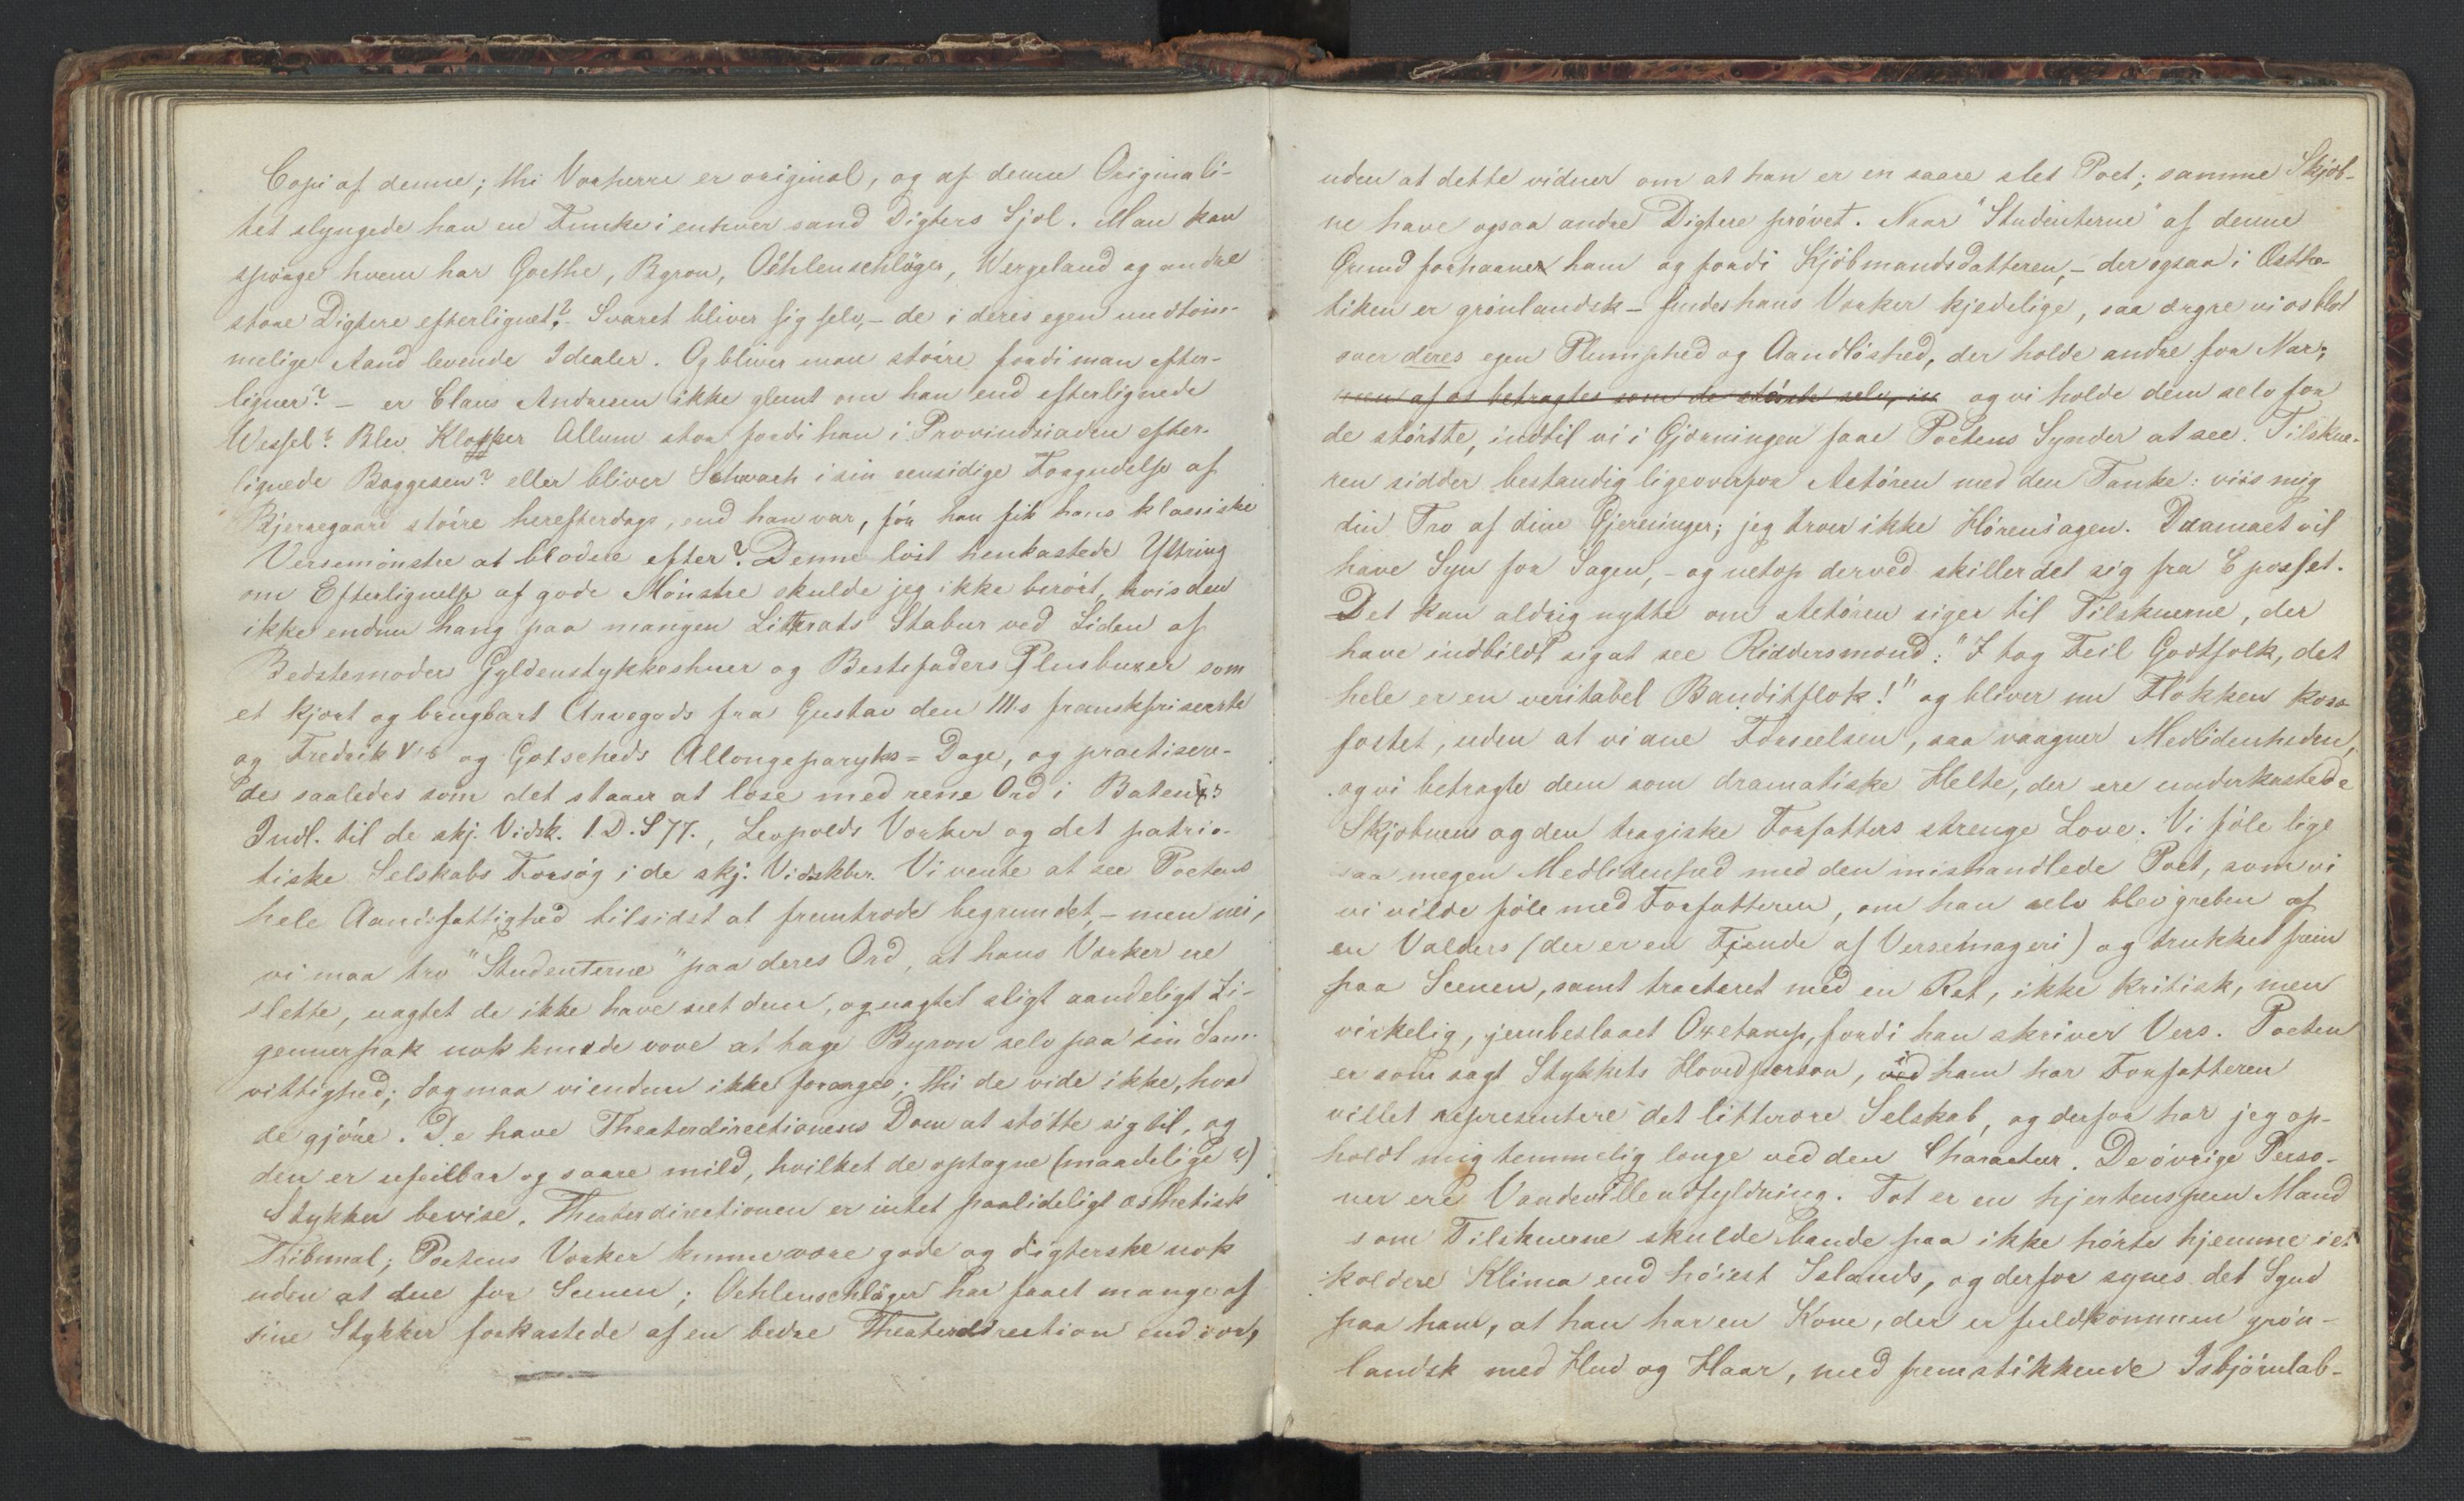 Copi af denne; thi Vorherre er original, og af denne Originali-
tet slyngede han en Funke i enhver sand Digters Sjæl. Man kan
spørge hvem har Goethe, Byron, Oehlenschläger, Wergeland og andre
store Digtere efterlignet? Svaret bliver sig selv, – de i deres egen eiendom-
melige Aand levende Idealer. Og bliver man større fordi man efter-
ligner? – er Claus Andresen ikke glemt om han end efterlignede
Wessel? Blev Klokker Allum stor fordi han i Provindsiaden efter-
lignede Baggesen? eller bliver Schwach i sin eensidige Forgudelse af
Bjerregaard større herefterdags, end han var, før han fik hans klassiske
Versemønstre at bladre efter? Denne løst henkastede Yttring
om Efterlignelse af gode Mønstre skulde jeg ikke berørt, hvis den
ikke endnu hang paa mangen Litterats Stabur ved Siden af
Bedstemoders Gyldenstykkeshuer og Bestefaders Plusbuxer som
et kjært og brugbart Arvegods fra Gustav den III.s franskfriserte
og Fredrik V's og Gotscheds Allongeparyks=Dage, og practisere-
des saaledes som det staaer at læse med rene Ord i Bateux's
Indl. til de skj. Vidsk. 1. D. S 77., Leopolds Værker og det patrio-
tiske Selskabs Forsøg i de skj. Vidskber. Vi vente at see Poetens
hele Aandsfattighed tilsidst at fremtræde begrundet, – men nei,
vi maa tro "Studenterne" paa deres Ord, at hans Værker ere
slette, uagtet de ikke have seet dem, og uagtet sligt aandeligt Zi-
geunerpak nok kunde vove at tage Byron selv paa sin Sam-
vittighed; dog maa vi endnu ikke forarges; thi de vide ikke, hvad
de gjøre. De have Theaterdirectionens Dom at støtte sig til, og
den er ufeilbar og saare mild, hvilket de optagne (maadelige?)
Stykker bevise. Theaterdirectionen er intet paalideligt æsthetisk
Tribunal; Poetens Værker kunne være gode og digterske nok
uden at due for Scenen; Oehlenschläger har faaet mange af
sine Stykker forkastede af en bedre Theaterdirection end vor,
uden at dette vidner om at han er en saare slet Poet; samme Skjæb-
ne have ogsaa andre Digtere prøvet. Naar "Studenterne" af denne
Grund forhaaner ham og fordi Kjøbmandsdatteren, – der ogsaa i Æsthe-
tiken er grønlandsk – findes hans Værker kjedelige, saa ærgre vi os blot
over deres egen Plumphed og Aandløshed, der holde andre for Nar;
men af os betragtes som de største selv, in og vi holde dem selv for
de største, indtil vi i Gjerningen faae Poetens Synder at see. Tilskue-
ren sidder bestandig ligeoverfor Actøren med den Tanke: viis mig
din Tro af dine Gjerninger; jeg troer ikke Hørensagen. Dramaet vil
have Syn for Sagen, – og netop derved skiller det sig fra Eposset.
Det kan aldrig nytte om Actøren siger til Tilskuerne, der
have indbildt sig at see Riddersmænd: "I tog Feil Godtfolk, det
hele er en veritabel Banditflok!" og bliver nu Flokken kors-
fæstet, uden at vi ane Forseelsen, saa vaagner Medlidenheden,
og vi betragte dem som dramatiske Helte, der ere underkastede
Skjæbnens og den tragiske Forfatters strenge Love. Vi føle lige
saa megen Medlidenhed med den mishandlede Poet, som vi
vi vilde føle med Forfatteren, om han selv blev greben af
en Valders (der er en Fiende af Versemageri) og trukket frem
paa Scenen, samt tracteret med en Rat, ikke kritisk, men
virkelig, jernbeslaaet Oxetamp, fordi han skriver Vers. Poeten
er som sagt Stykkets Hovedperson, ved i ham har Forfatteren
villet repræsentere det litterære Selskab, og derfor har jeg op-
holdt mig temmelig længe ved den Character. De øvrige Perso-
ner ere Vaudevilleudfyldning. Tot er en hjertenspæn Mand
som Tilskuerne skulde bande paa ikke hørte hjemme i et
koldere Klima end høiest Islands, og derfor synes det Synd
paa ham, at han har en Kone, der er fuldkommen grøn-
landsk med Hud og Haar, med fremstikkende Isbjørnlab-